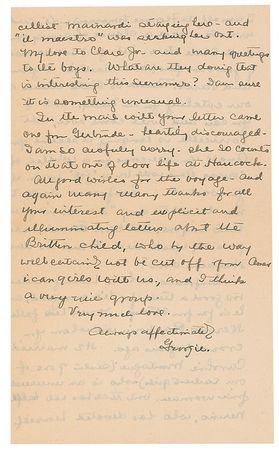 cellist Mainardi staying here - and
"il maestro" was seeking her out.
My love to Clare Jr. and many greetings
to the boys. What are they doing that
is interesting this summer? I am sure
it is something unusual.
In the mail with your letter came
one from Gertrude - heartily discouraged -
I am so awfully sorry. She so counts
on that out of door life at Hancock.
All good wishes for the voyage - and
again many many thanks for all
your interest and explicit and
illuminating letters about the
British child, who by the way
will certainly not be cut off from Amer
ican girls with us, and I think
a very nice group.
Very much love.
Always affectionately
Georgie.